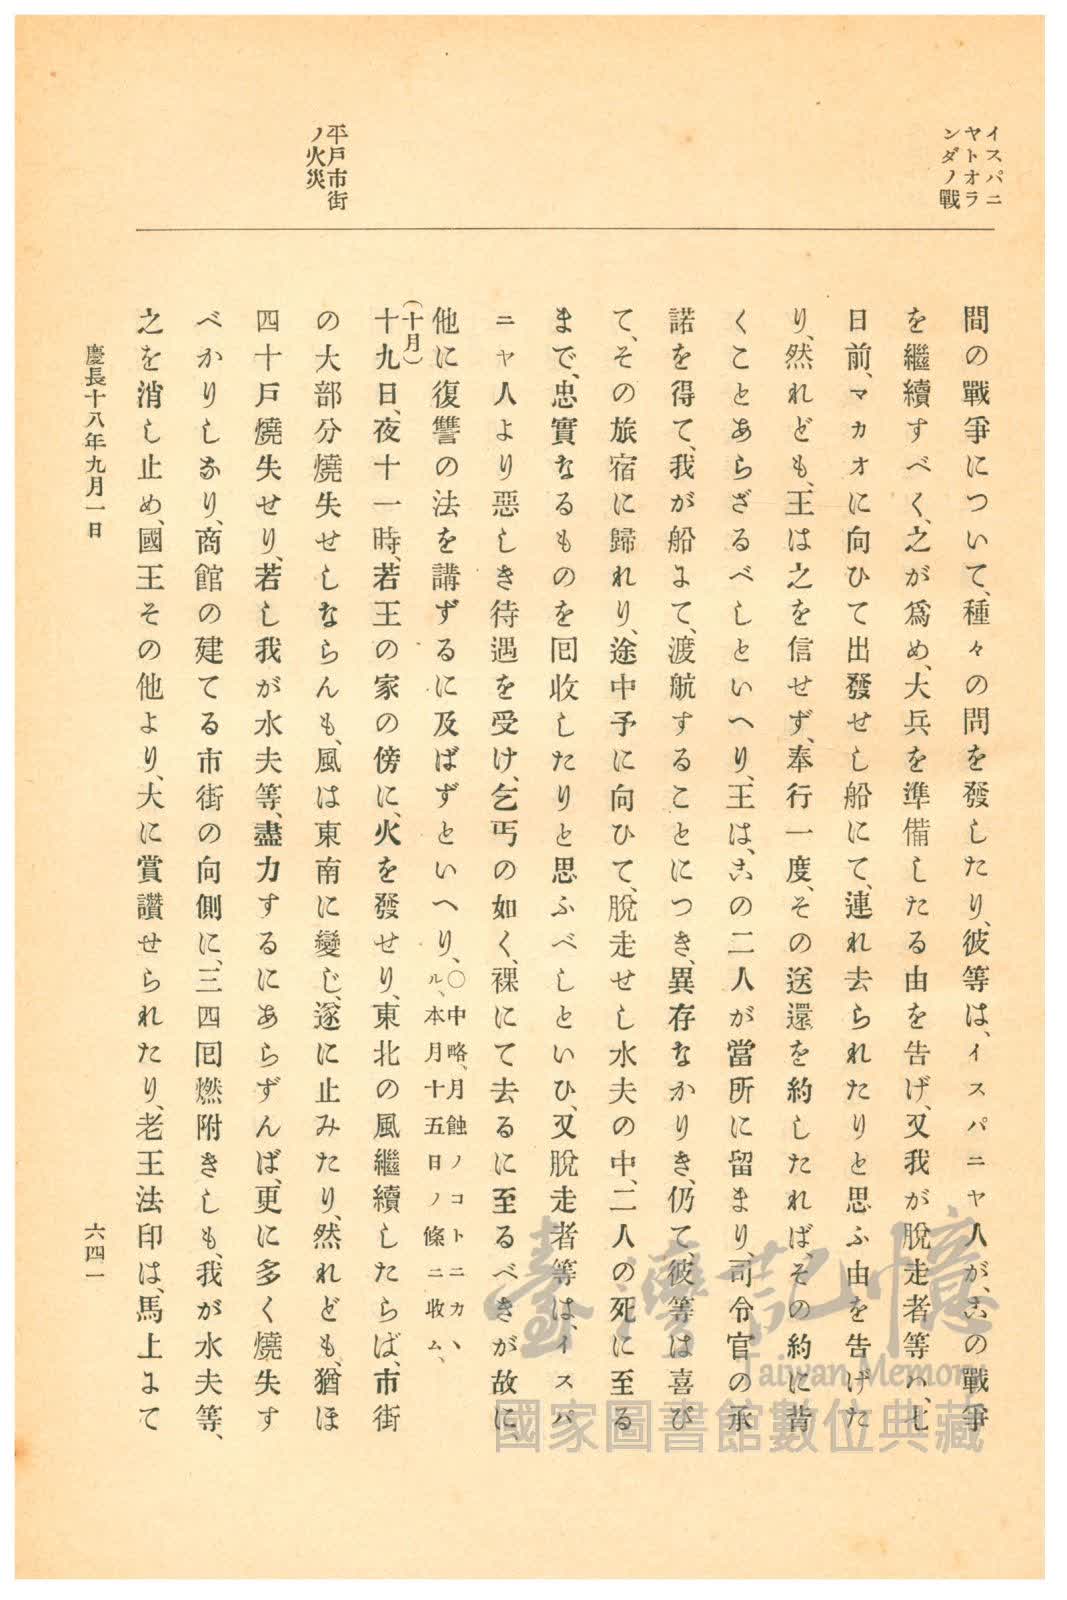 イスパニ
ヤトオラ
ンダノ戰
平戸市街
ノ火災
間の戰爭について、種々の問を發したり、彼等は、イスパニヤ人が、この戰爭
を繼續すべく、之が爲め、大兵を準備したる由を告げ、又我が脫走者等ハ、七
日前、マカオに向ひて出發せし船にて、連れ去られたりと思ふ由を告げた
り、然れども、王は之を信せず、奉行一度、その送還を約したれば、その約に背
くことあらざるべしといへり、王は、この二人が當所に留まり、司令官の承
諾を得て、我が船よて、渡航することにつき、異存なかりき、仍て、彼等は喜び
て、その旅宿に歸れり、途中予に向ひて、脫走せし水夫の中、二人の死に至る
まで、忠實なるものを回收したりと思ふべしといひ、又脫走者等は、イスパ
ニヤ人より惡しき待遇を受け、乞丐の如く、裸にて去るに至るべきが故に、
他に復讐の法を講ずるに及ばずといへり、〇中略、月蝕ノコトニカヽ
ル、本月十五日ノ條ニ收ム、
(十月)
十九日、夜十一時、若王の家の傍に、火を發せり、東北の風繼續したらば、市街
の大部分燒失せしならんも、風は東南に變じ、遂に止みたり、然れども、猶ほ
四十戸燒失せり、若し我が水夫等、盡力するにあらずんば、更に多く燒失す
べかりしなり、商館の建てる市街の向側に、三四回燃附きしも、我が水夫等、
之を消し止め、國王その他より、大に賞讚せられたり、老王法印は、馬上よて
慶長十八年九月一日
六四一
臺灣記憶
Taiwan Memory
國家圖書館數位典藏